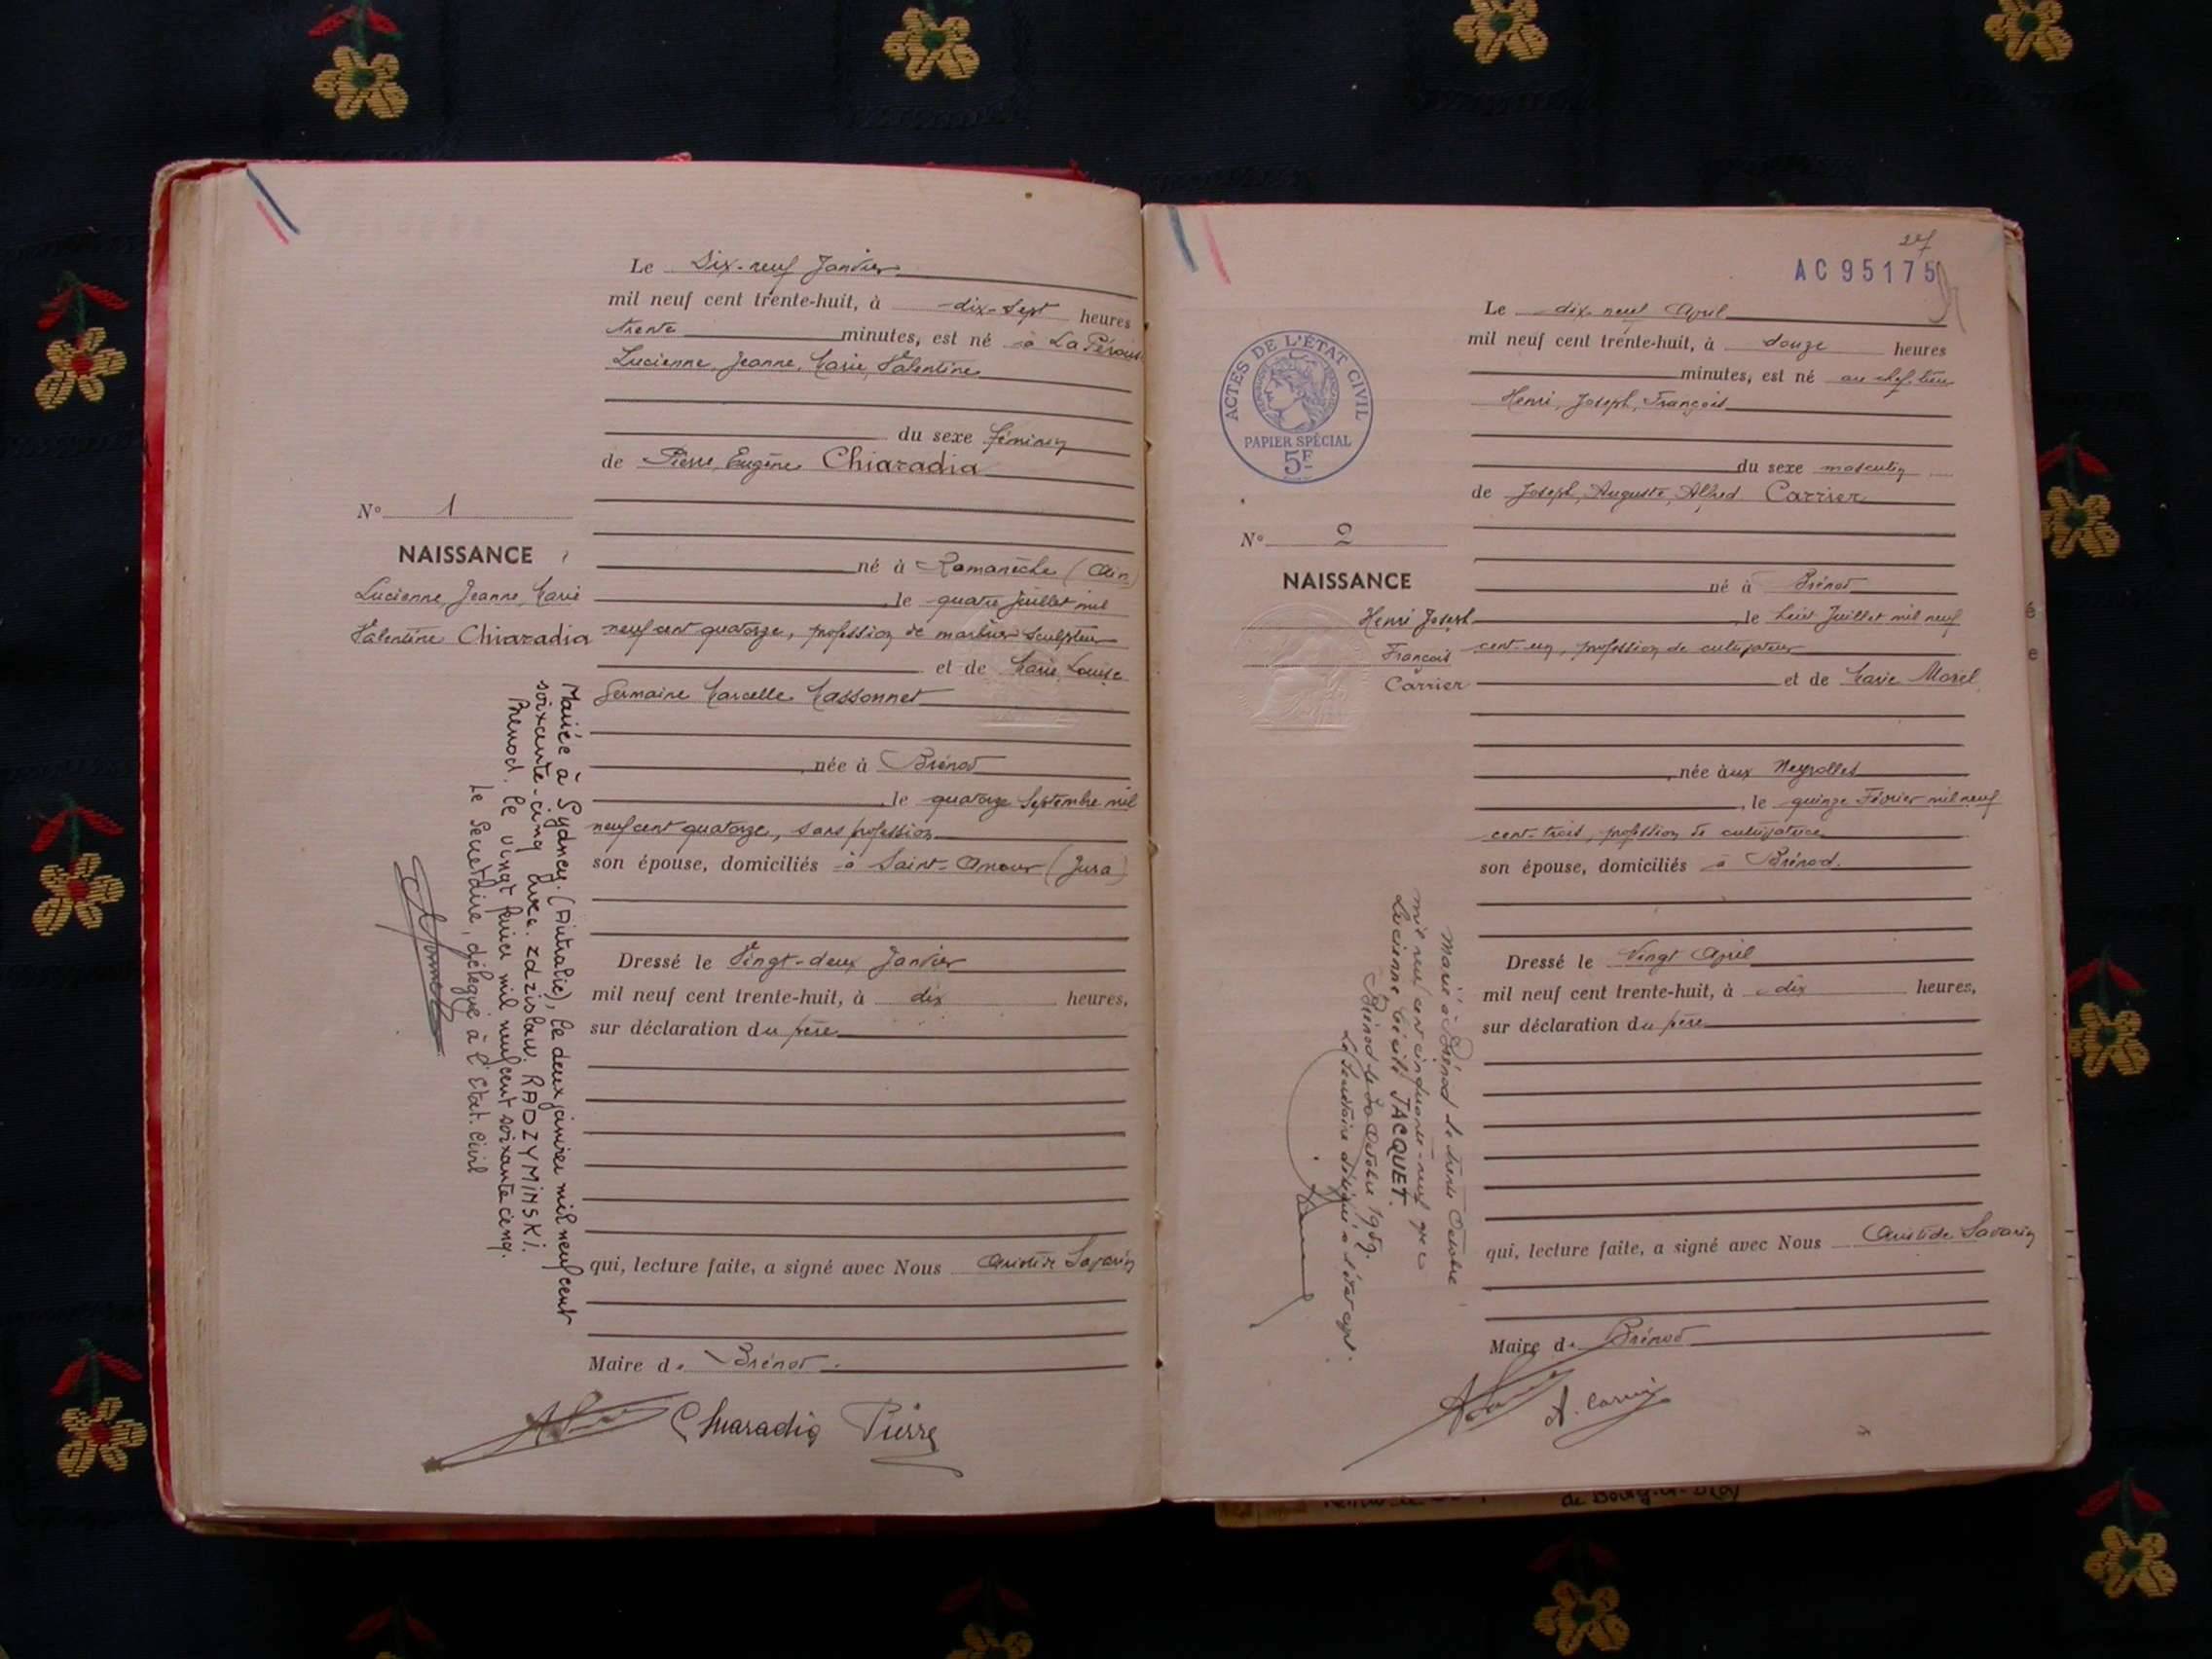 Le Dix-neuf Janvier
mil neuf cent trente-huit, à dix-sept heures
trente minutes, est né à La Pérouse
Lucienne, Jeanne, Marie, Valentine
du sexe féminin
de Pierre, Eugène Chiaradia
N° 1
NAISSANCE
Lucienne, Jeanne, Marie
Valentine Chiaradia
né à Romanèche (Ain)
le quatre juillet mil
neuf cent quatorze, profession de marbrier sculpteur
et de Marie, Louise
Germaine Marcelle Massonnet
née à Brénod
le quatorze Septembre mil
neuf cent quatorze, sans profession
son épouse, domiciliés à Saint-Amour (Jura)
Dressé le Vingt-deux Janvier
mil neuf cent trente-huit, à dix heures,
sur déclaration du père
qui, lecture faite, a signé avec Nous Aristide Savarin
Maire de Brénod
Chiaradia Pierre
Mariée à Sydney (Australie), le deux janvier mil neuf cent
soixante-cinq avec Zdzislaw RADZYMINSKI.
Brenod, le vingt mil neuf cent soixante cinq.
Le Secrétaire, délégué à l'Etat-civil
27
AC 95175
ACTES DE L'ÉTAT CIVIL
PAPIER SPÉCIAL
5F
Le dix-neuf Avril
mil neuf cent trente-huit, à douze heures
minutes, est né au chef-lieu
Henri, Joseph, François
du sexe masculin
de Joseph, Auguste, Alfred Carrier
N° 2
NAISSANCE
Henri Joseph
François
Carrier
né à Brénod
le huit Juillet mil neuf
cent-un, profession de cultivateur
et de Marie Morel
née aux Neyrolles
le quinze Février mil neuf
cent-trois, profession de cultivatrice
son épouse, domiciliés à Brénod.
Dressé le Vingt Avril
mil neuf cent trente-huit, à dix heures,
sur déclaration du père
qui, lecture faite, a signé avec Nous Aristide Savarin
Maire de Brénod
A. Carrier
Marié à Brénod le trente Octobre
mil neuf cent cinquante-neuf avec
Lucienne Cécile JACQUET.
Brénod le 30 Octobre 1959.
Le Secrétaire délégué à l'état civil.
de Bourg-